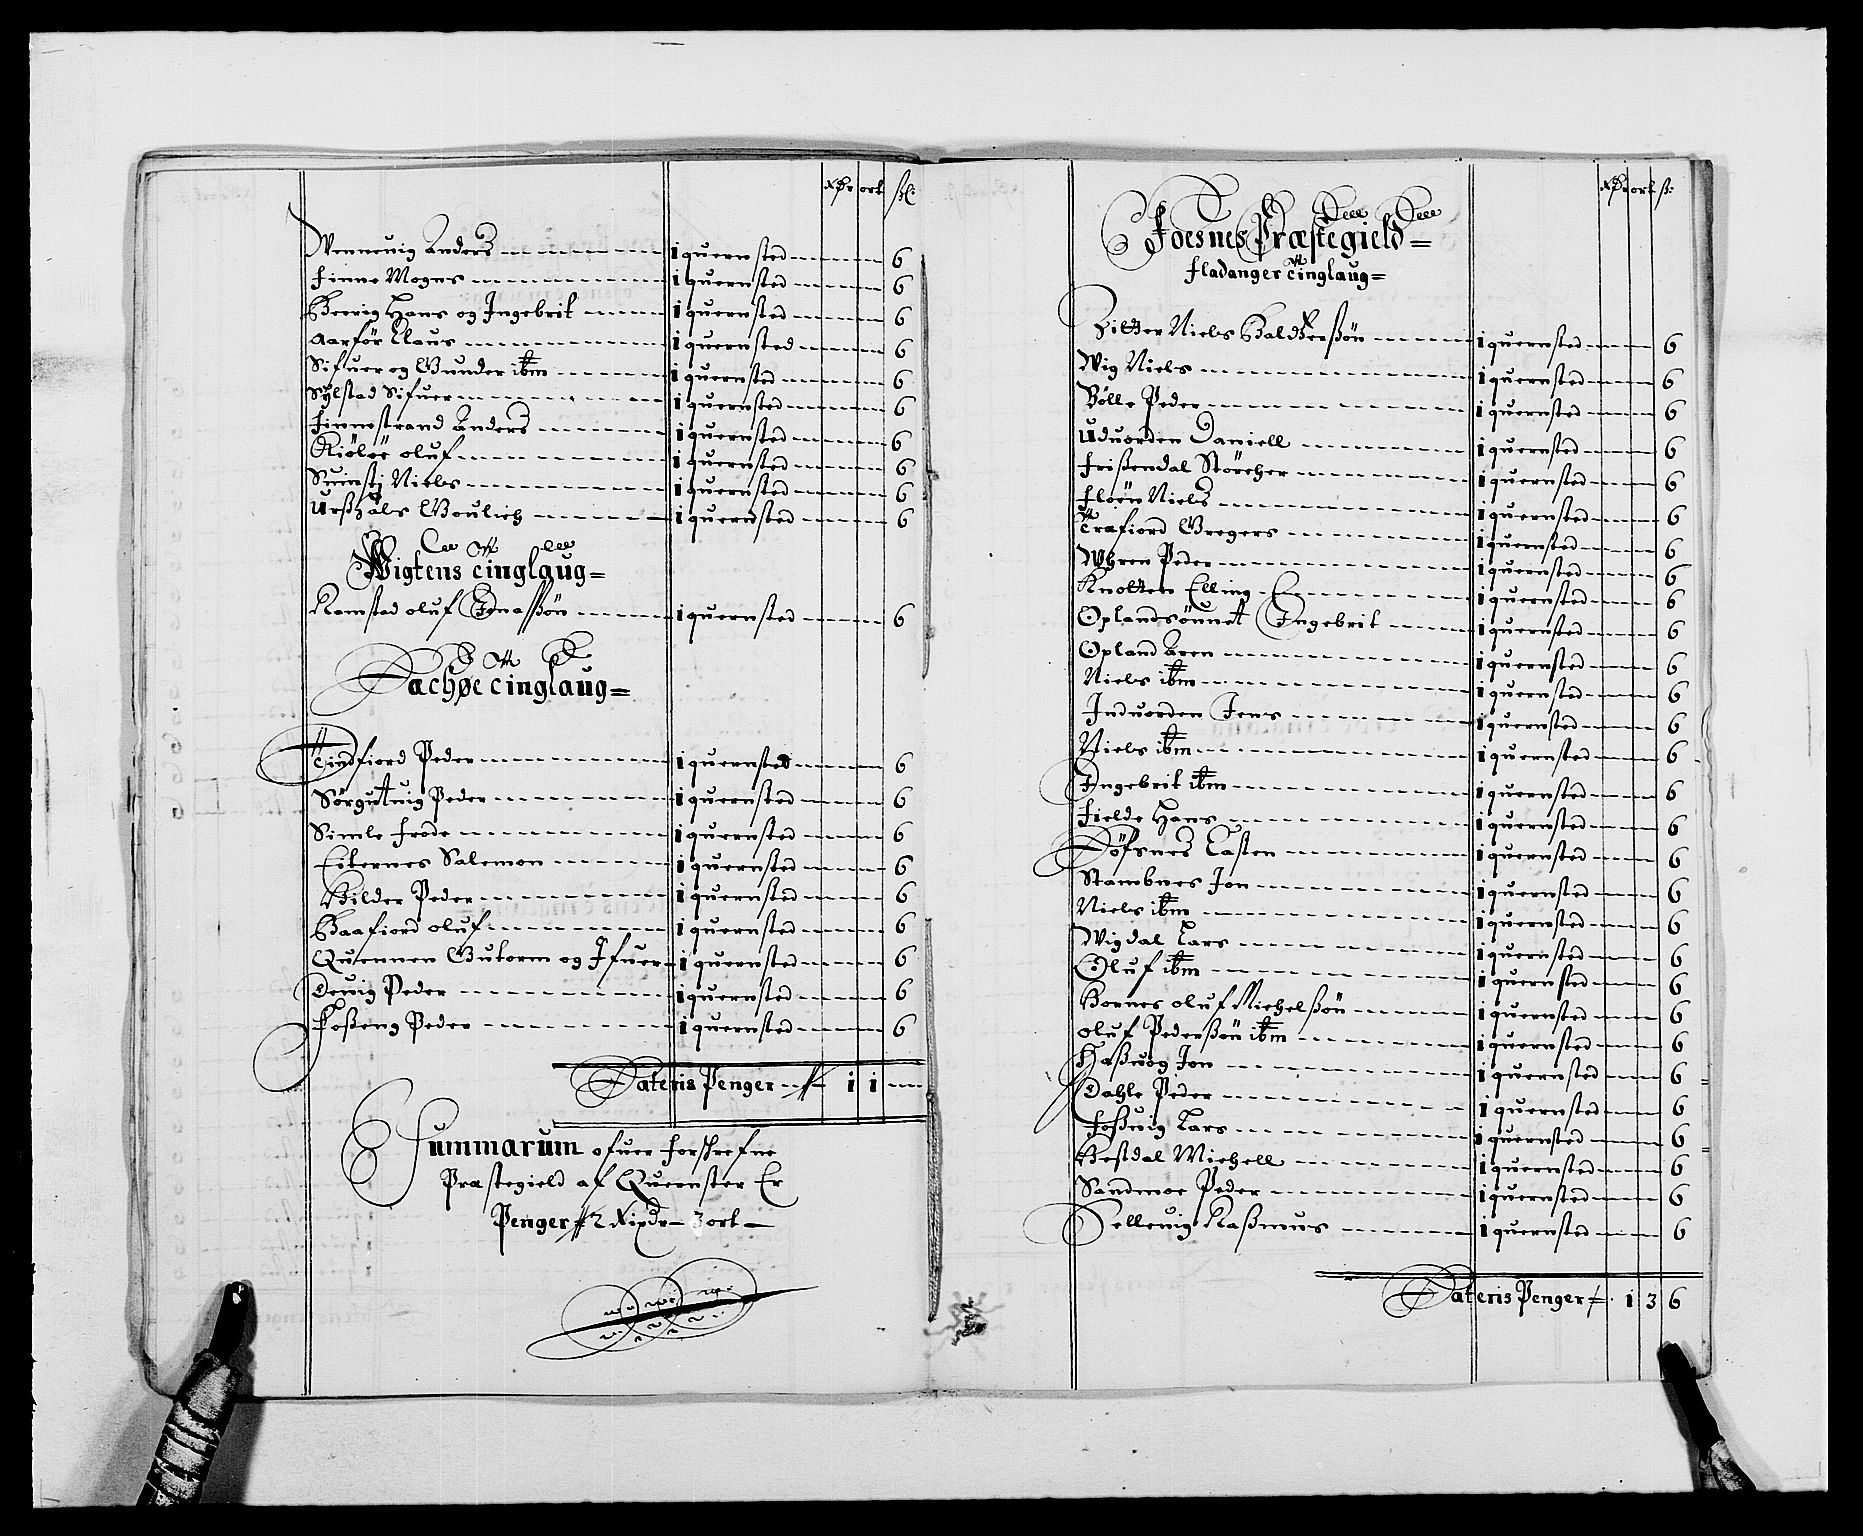 Rdr ort ßl:
Wennevig Anders 1 quernsted 6
Finne Mogns 1 quernsted 6
Beerig Hans og Ingebrit 1 quernsted 6
Aarför Claus 1 quernsted 6
Sifuer og Gunder ibm 1 quernsted 6
Sylstad Sifuer 1 quernsted 6
Finnestrand Anders 1 quernsted 6
Kiölöe oluf 1 quernsted 6
Suinsti Niels 1 quernsted 6
Urßhals Goulich 1 quernsted 6
Wigtens Tinglaug=
Ramstad oluf Jonaßön 1 quernsted 6
Sachøe Tinglaug=
Tindfiord Peder 1 quernsted 6
Sörgutuig Peder 1 quernsted 6
Simle Frode 1 quernsted 6
Eiternes Salemon 1 quernsted 6
Gilder Peder 1 quernsted 6
Baafiord oluf 1 quernsted 6
Quennen Gutorm og Ifuer 1 quernsted 6
Devig Peder 1 quernsted 6
Foßeng Peder 1 quernsted 6
Lateris Penger 1 1
Summarum ofuer Forschrefne
Præstegield af Quernster Er
Penger 2 Rixdr 3 ort
Rdr ort ß:
Foesnes Præstegield=
Fladanger Tinglaug=
Zitter Niels Baldtzerßön 1 quernsted 6
Wig Niels 1 quernsted 6
Bölle Peder 1 quernsted 6
Uduorden Daniell 1 quernsted 6
Frißendal Störcher 1 quernsted 6
Floen Niels 1 quernsted 6
Trafiord Gregers 1 quernsted 6
Whren Peder 1 quernsted 6
Knotten Elling 1 quernsted 6
Oplandsöunet Ingebrit 1 quernsted 6
Opland Aren 1 quernsted 6
Niels ibm 1 quernsted 6
Induorden Jens 1 quernsted 6
Niels ibm 1 quernsted 6
Ingebrit ibm 1 quernsted 6
Fielde Hans 1 quernsted 6
Döfsnes Casten 1 quernsted 6
Stambnes Jon 1 quernsted 6
Niels ibm 1 quernsted 6
Wigdal Lars 1 quernsted 6
Oluf ibm 1 quernsted 6
Hornes oluf Michelßön 1 quernsted 6
Oluf Pederßön ibm 1 quernsted 6
Haßuog Jon 1 quernsted 6
Dahle Peder 1 quernsted 6
Foßuig Lars 1 quernsted 6
Bestdal Michell 1 quernsted 6
Sandmoe Peder 1 quernsted 6
Selleuig Raßmus 1 quernsted 6
Lateris Penger 1 3 6